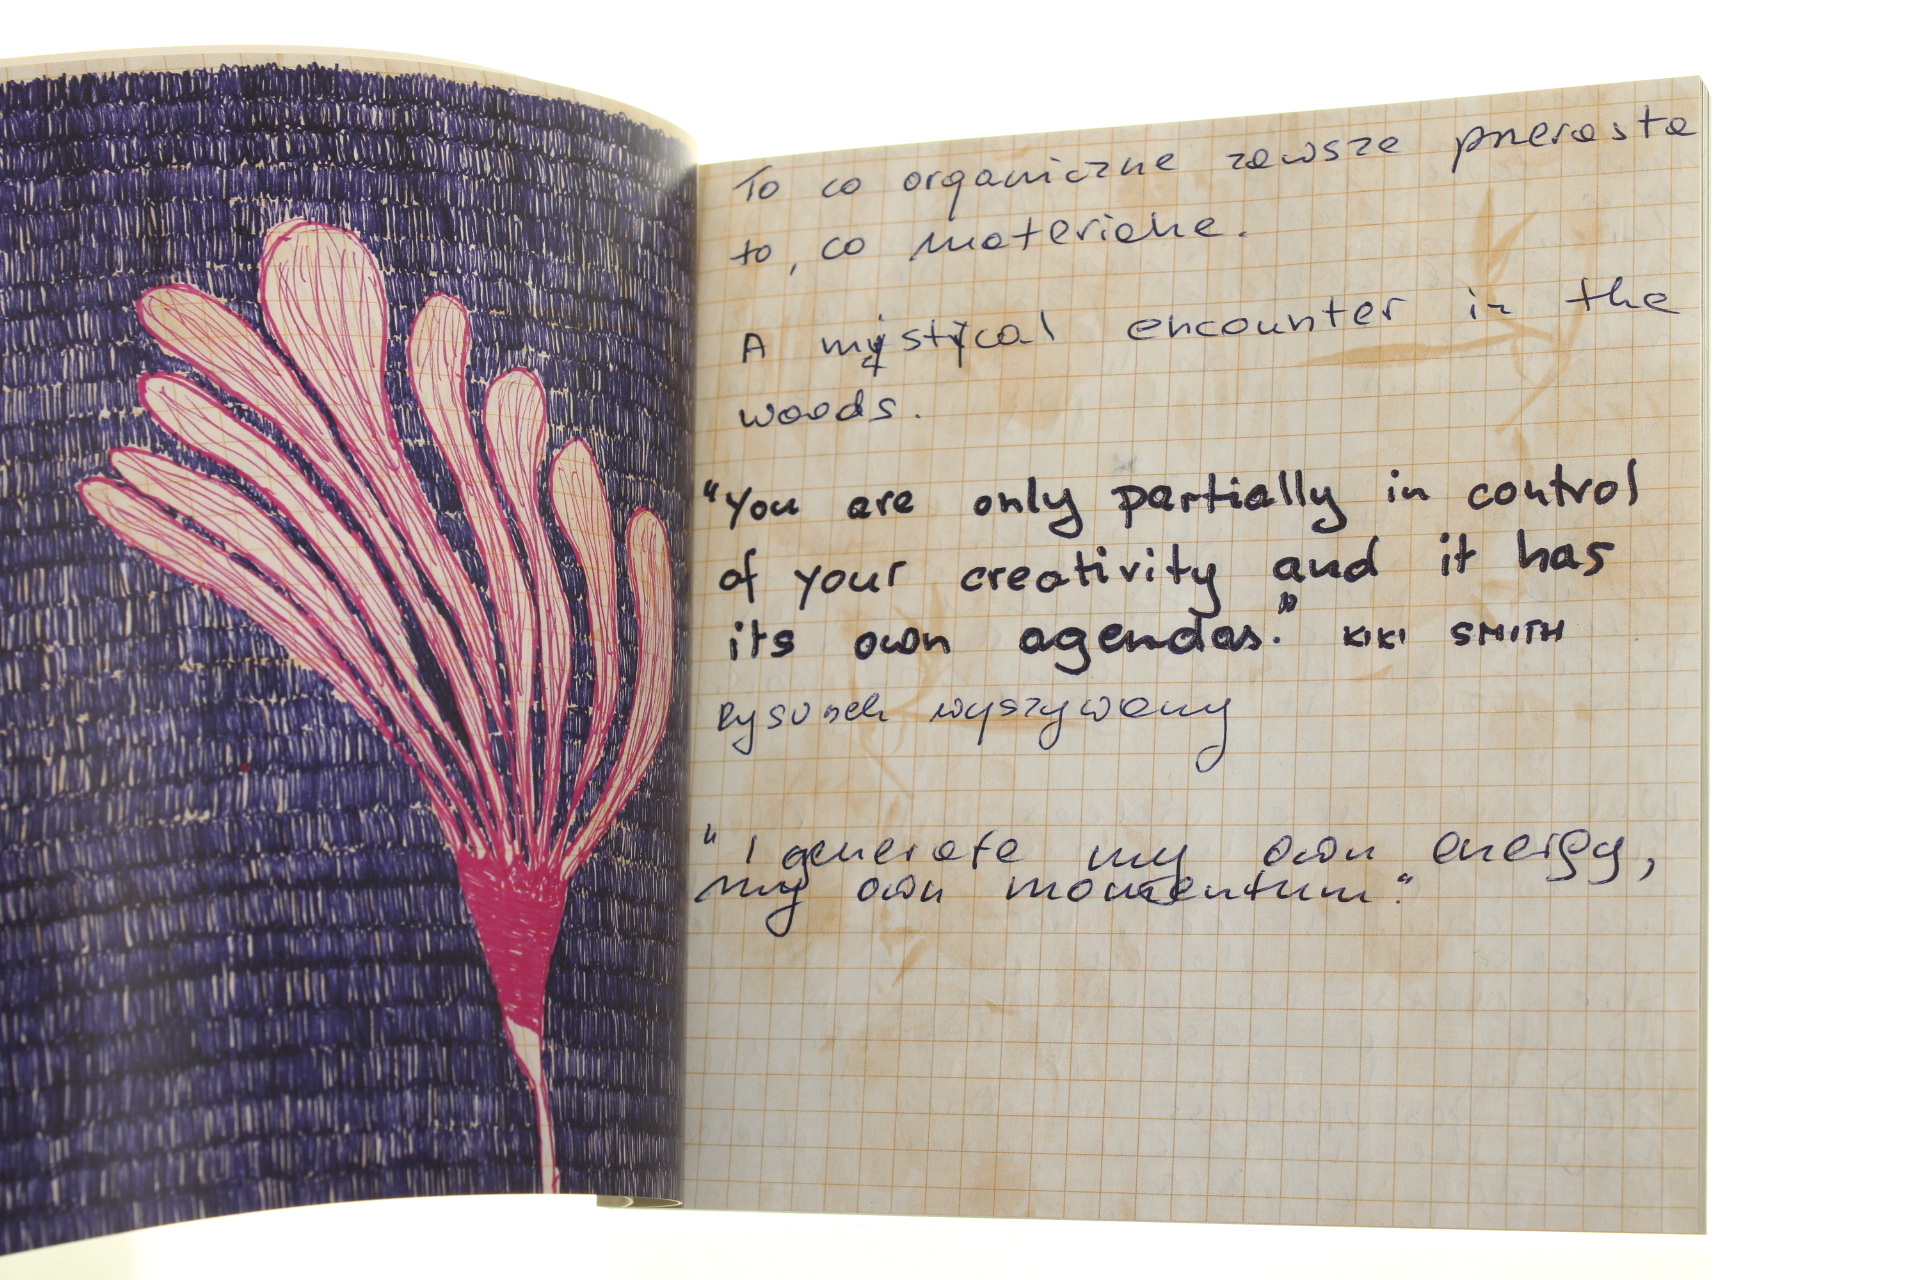 To co organiczne zawsze przerasta
to, co materialne.
A mystical encounter in the
woods.
"You are only partially in control
of your creativity and it has
its own agendas." KIKI SMITH
Rysunek wyszywany
"I generate my own energy,
my own momentum."